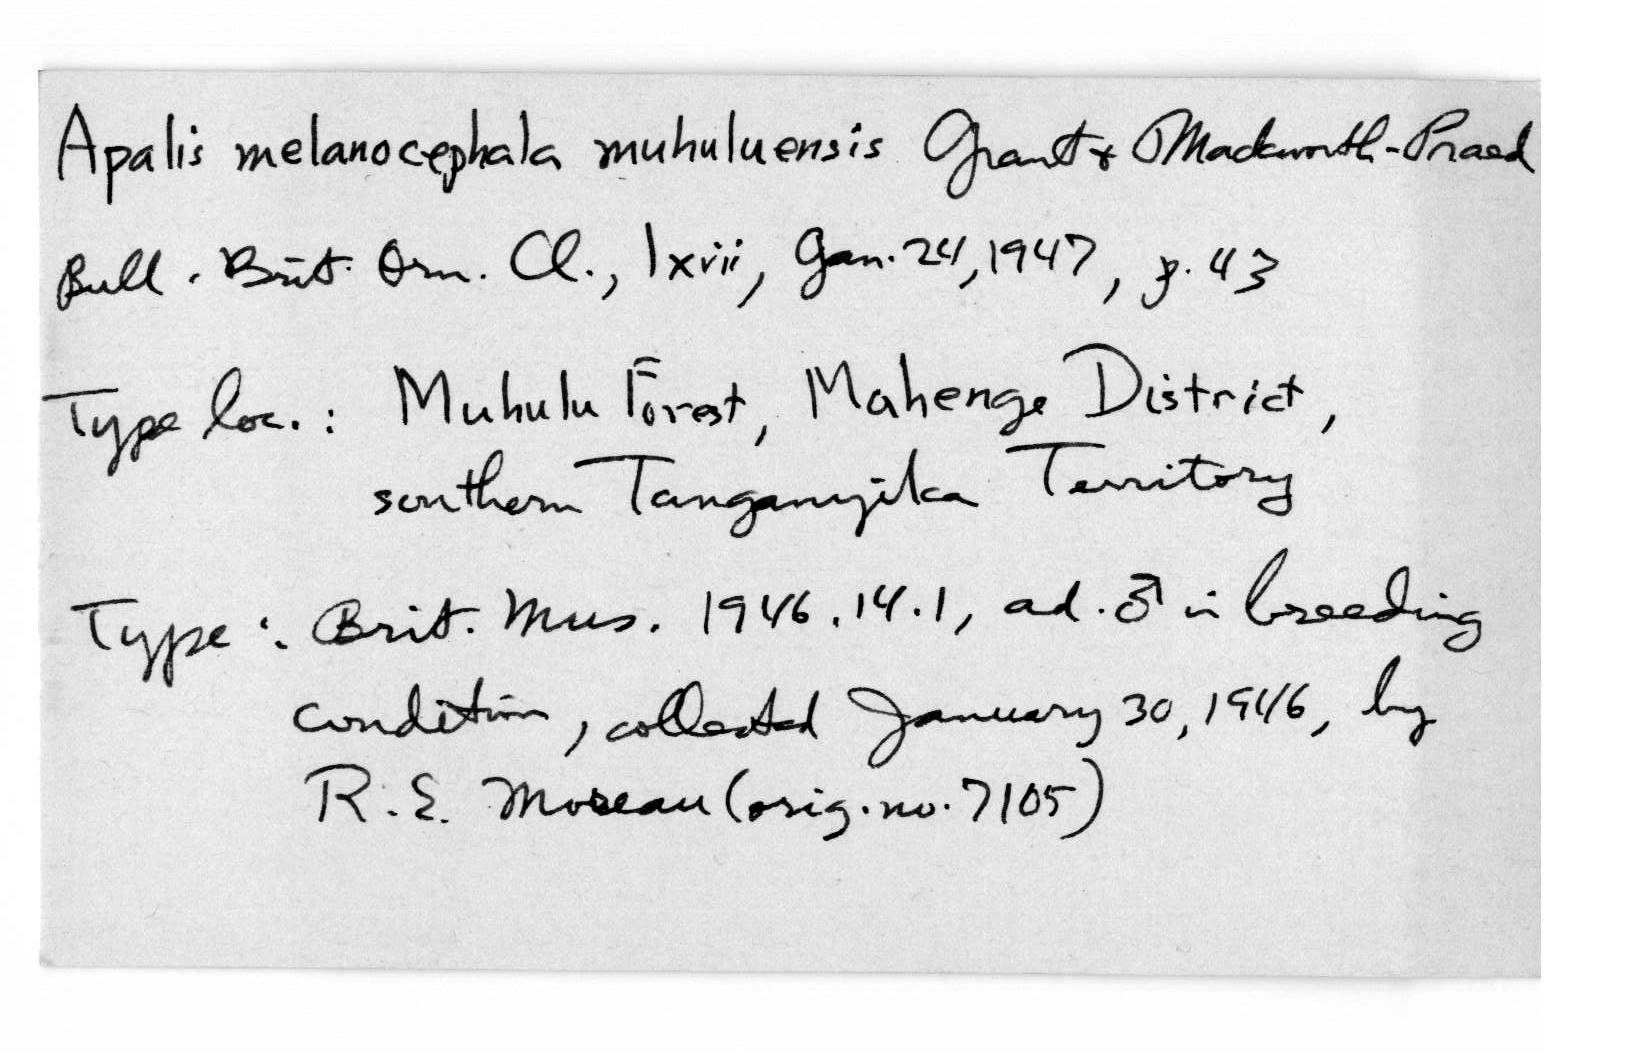 Apalis melanocephala muhuluensis Grant & Mackworth-Praed
Bull. Brit. Orn. Cl., lxvii, Jan. 24, 1947, p. 43
Type loc.: Muhulu Forest, Mahenge District,
southern Tanganyika Territory
Type: Brit. Mus. 1946.14.1, ad. ♂ in breeding
condition, collected January 30, 1946, by
R.E. Moreau (orig. no. 7105)